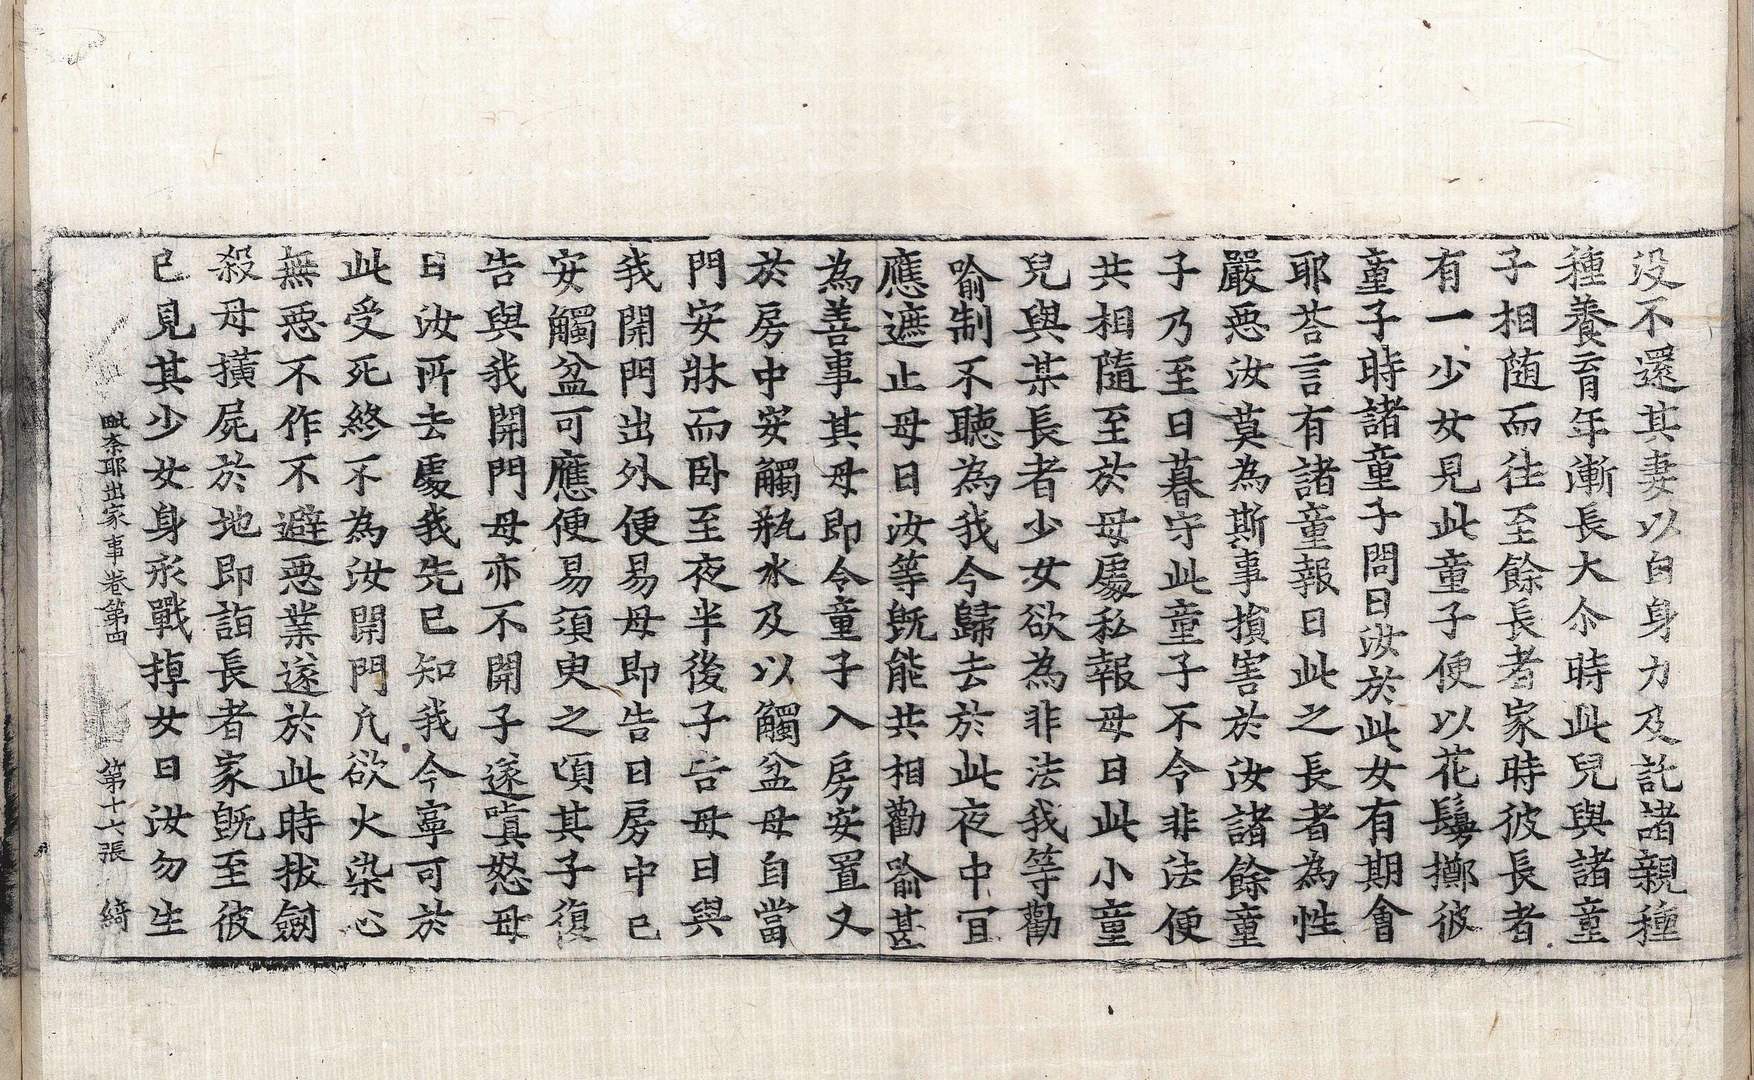 没不還其妻以自身力及託諸親種
種養育年漸長大尒時此兒與諸童
子相随而往至餘長者家時彼長者
有一少女見此童子便以花鬘擲彼
童子時諸童子問曰汝於此女有期會
耶荅言有諸童報曰此之長者為性
嚴惡汝莫為斯事損害於汝諸餘童
子乃至日暮守此童子不令非法便
共相隨至於母處私報母曰此小童
兒與某長者少女欲為非法我等勸
喻制不聽為我今歸去於此夜中宜
應遮止母曰汝等旣能共相勸喻甚
為善事其母即令童子入房安置又
於房中安觸瓶水及以觸盆母自當
門安牀而卧至夜半後子告母曰與
我開門出外便易母即告曰房中已
安觸盆可應便易須臾之頃其子復
告與我開門母亦不開子遂嗔怒母
曰汝所去處我先已知我今寧可於
此受死終不為汝開門凡欲火染心
無惡不作不避惡業遂於此時拔劒
殺母橫屍於地即詣長者家旣至彼
已見其少女身形戰掉女曰汝勿生
毗奈耶出家事卷第四 第十六張 綺